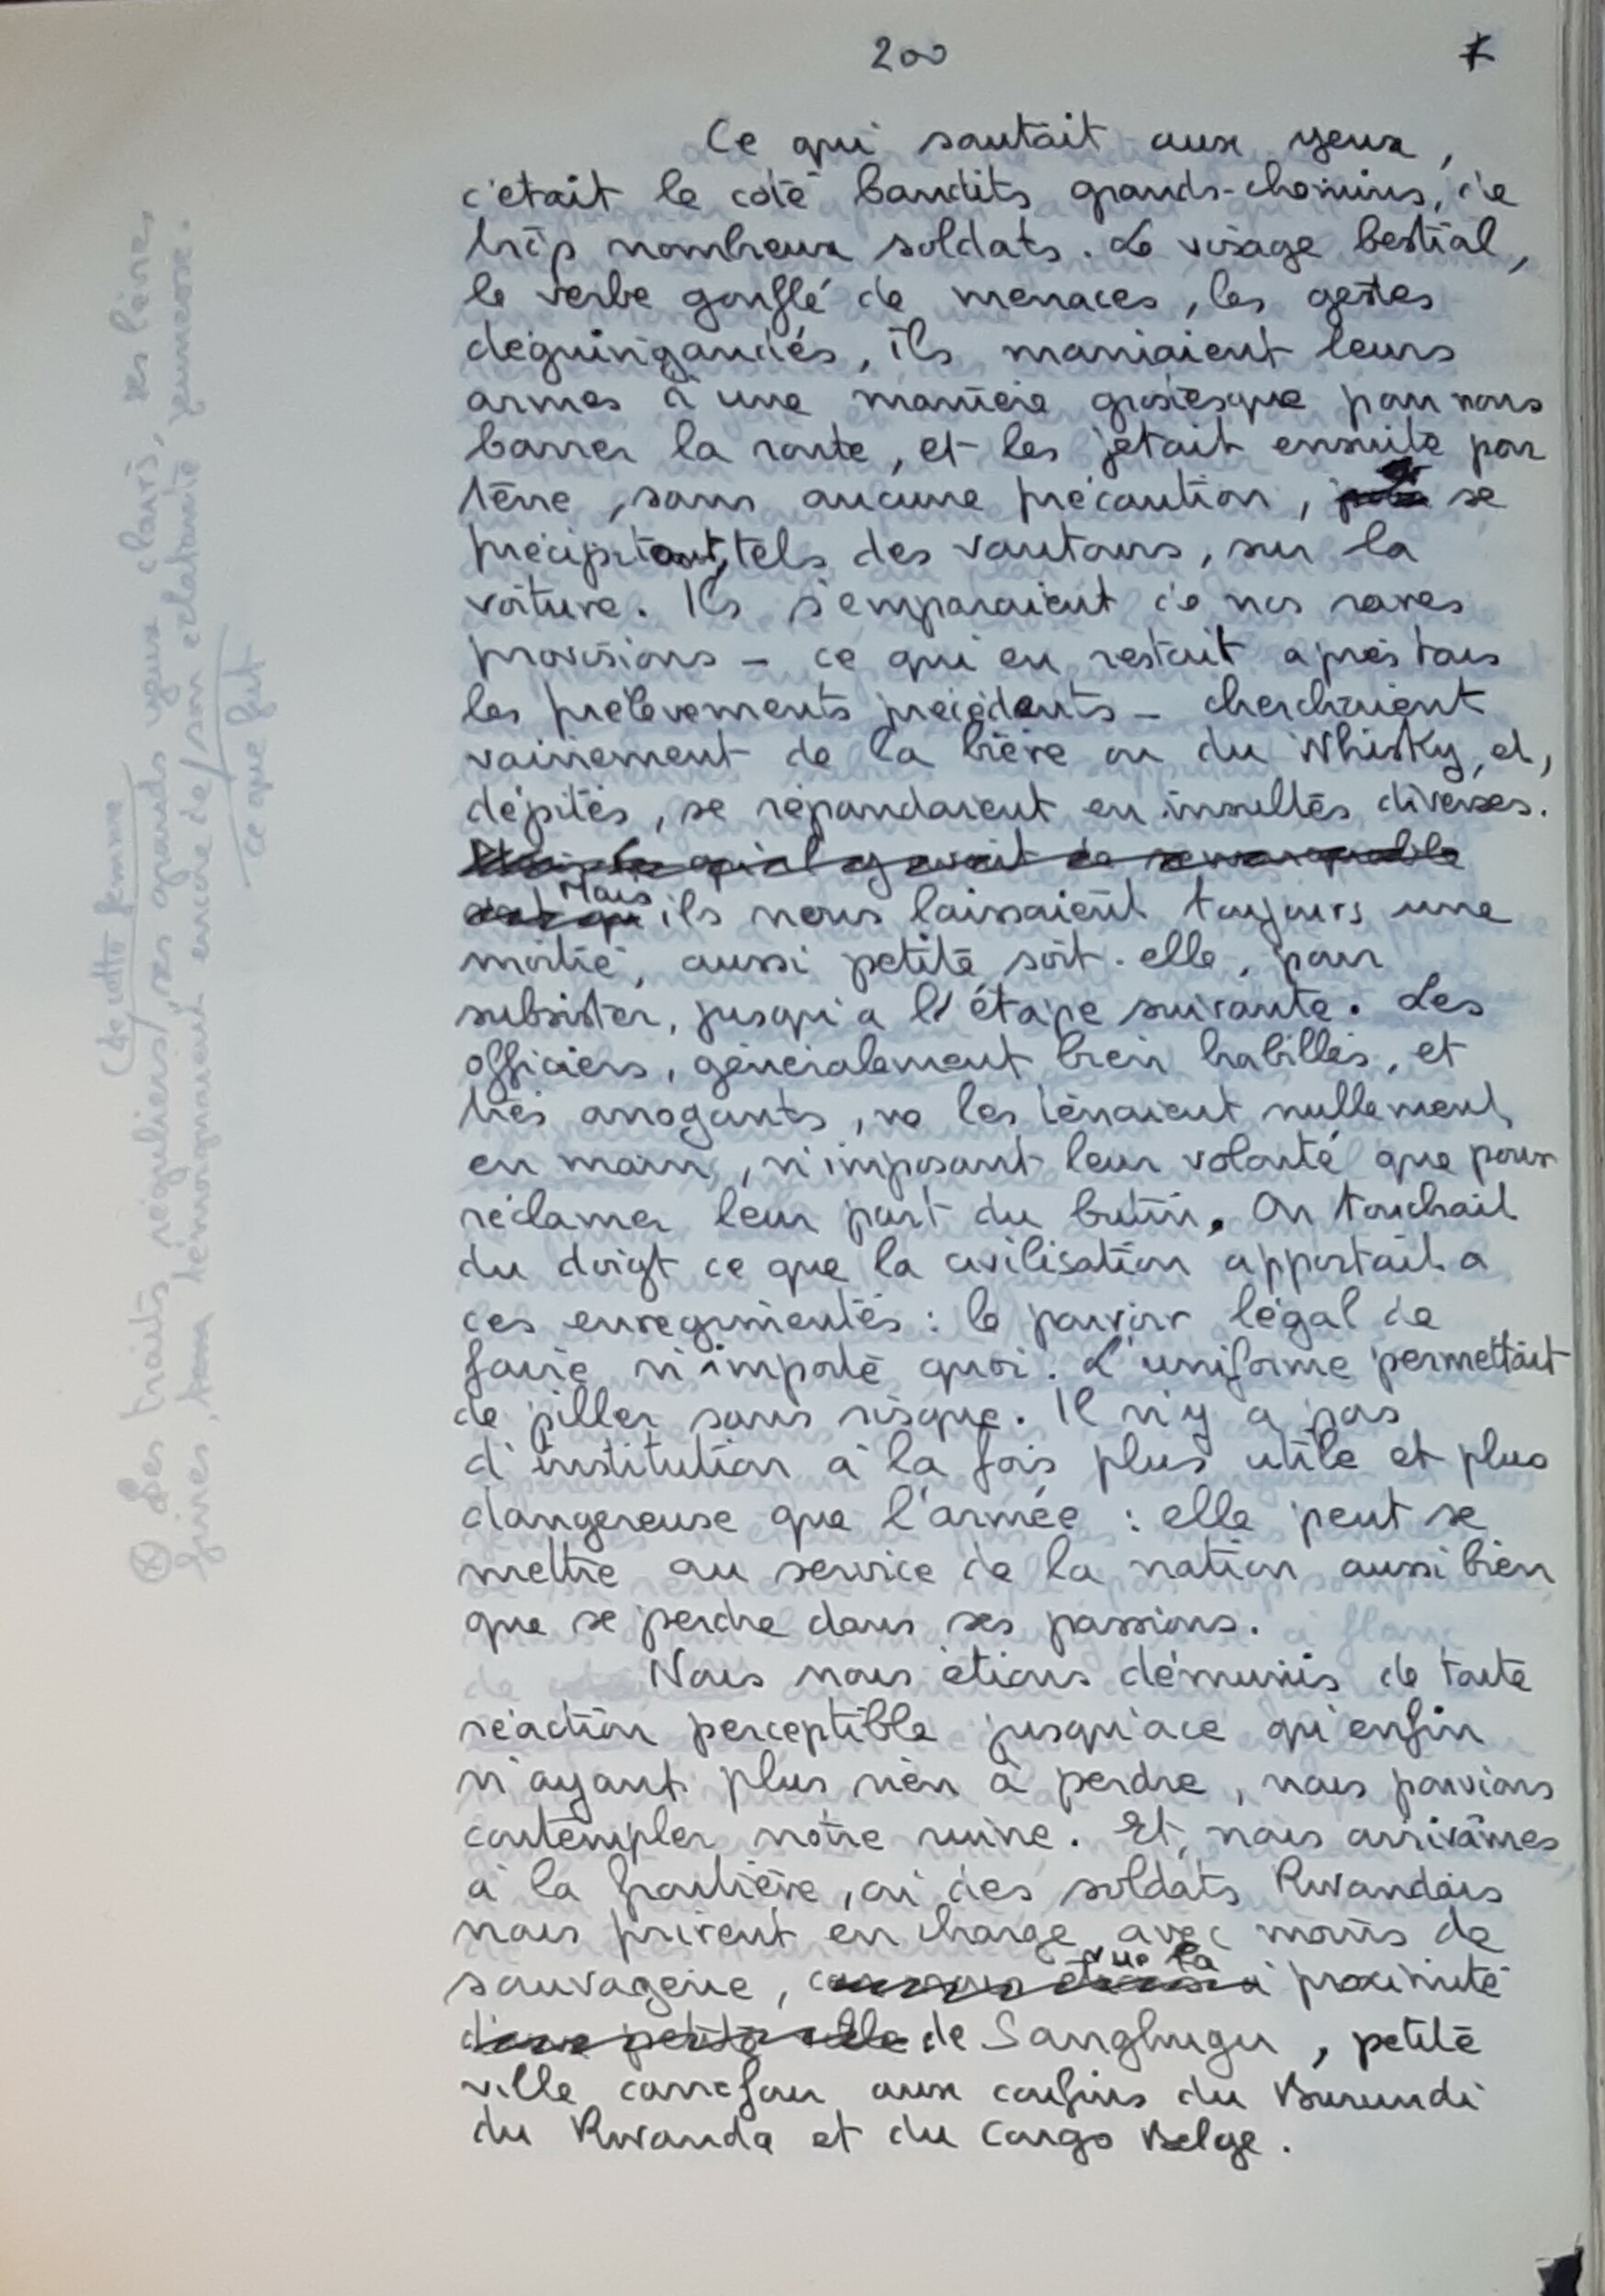 200
Ce qui sautait aux yeux,
c'était le côté bandits grands-chemins, de
trop nombreux soldats. Le visage bestial,
le verbe gonflé de menaces, les gestes
déguingandés, ils maniaient leurs
armes d'une manière grotesque pour nous
barrer la route, et les jetait ensuite par
terre, sans aucune précaution, se
précipitant, tels des vautours, sur la
voiture. Ils s'emparaient de nos rares
provisions – ce qui en restait après tous
les prélèvements précédents – cherchaient
vainement de la bière ou du Whisky, et,
dépités, se répandaient en insultes diverses.
qu'il y avait de remarquable
Mais
ils nous laissaient toujours une
moitié, aussi petite soit-elle, pour
subsister, jusqu'à l'étape suivante. Les
officiers, généralement bien habillés, et
très arrogants, ne les tenaient nullement
en main, n'imposant leur volonté que pour
réclamer leur part du butin. On touchait
du doigt ce que la civilisation apportait a
ces enrégimentés : le pouvoir légal de
faire n'importe quoi. L'uniforme permettait
de piller sans risque. Il n'y a pas
d'institution à la fois plus utile et plus
dangereuse que l'armée : elle peut se
mettre au service de la nation aussi bien
que se perdre dans ses passions.
Nous nous étions démunis de toute
réaction perceptible jusqu'à ce qu'enfin
n'ayant plus rien à perdre, nous pouvions
contempler notre ruine. Et, nous arrivâmes
à la frontière, où des soldats Rwandais
nous prirent en charge avec moins de
vue la
sauvagerie, proximité
d'une petite ville de Sanghugu, petite
ville carrefour aux confins du Burundi
du Rwanda et du Congo Belge.
(de cette femme
⊗ Les traits réguliers, ses grands yeux clairs, ses lèvres
fines, témoignaient encore de son éclatante jeunesse.
ce que fut